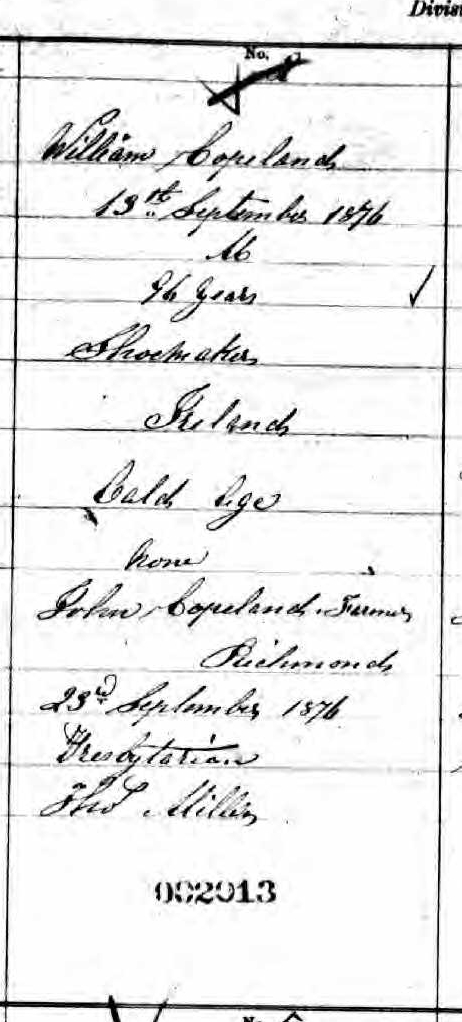 Divis
No.
William Copeland
13th September 1876
M
96 Years
Shoemaker
Ireland
Bald Age
None
John Copeland. Farmer
Richmond
23rd September 1876
Presbytarian
Thos Miller
002013
No.